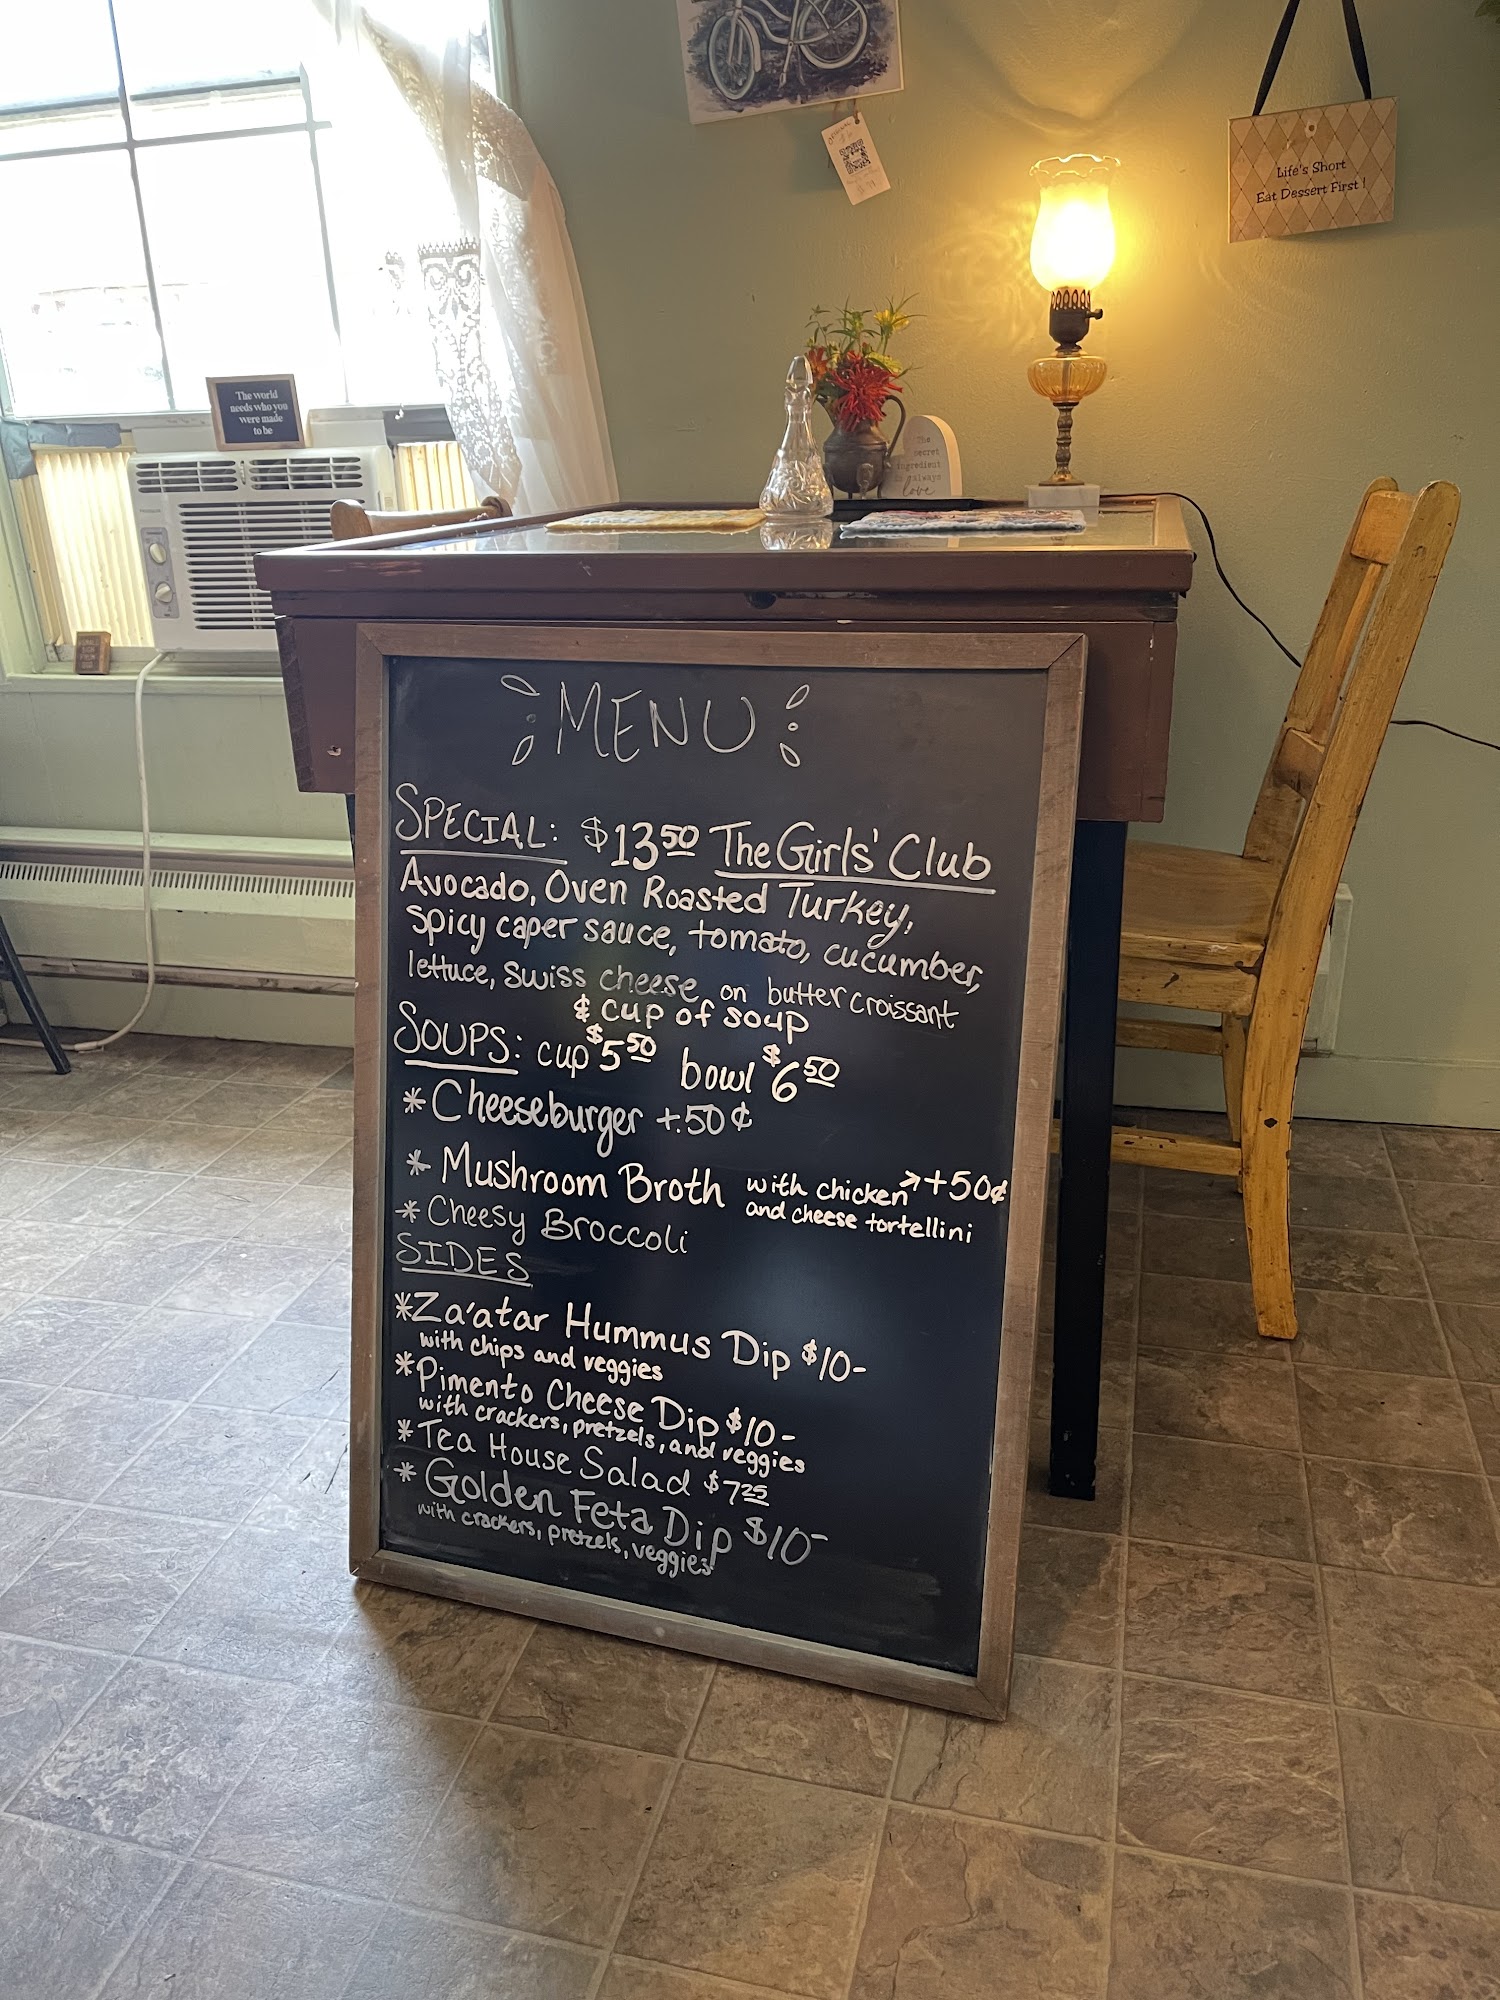 Life's Short
Eat Dessert First!
The world
needs who you
were made
to be
The
secret
ingredient
is always
love
MENU
SPECIAL: $13.50 The Girls' Club
Avocado, Oven Roasted Turkey,
spicy caper sauce, tomato, cucumber,
lettuce, swiss cheese on butter croissant
& cup of soup
SOUPS: cup $5.50 bowl $6.50
*Cheeseburger +.50¢
* Mushroom Broth with chicken ↗+50¢
and cheese tortellini
* Cheesy Broccoli
SIDES
*Za'atar Hummus Dip $10-
with chips and veggies
*Pimento Cheese Dip $10-
with crackers, pretzels, and veggies
*Tea House Salad $7.25
* Golden Feta Dip $10-
with crackers, pretzels, veggies